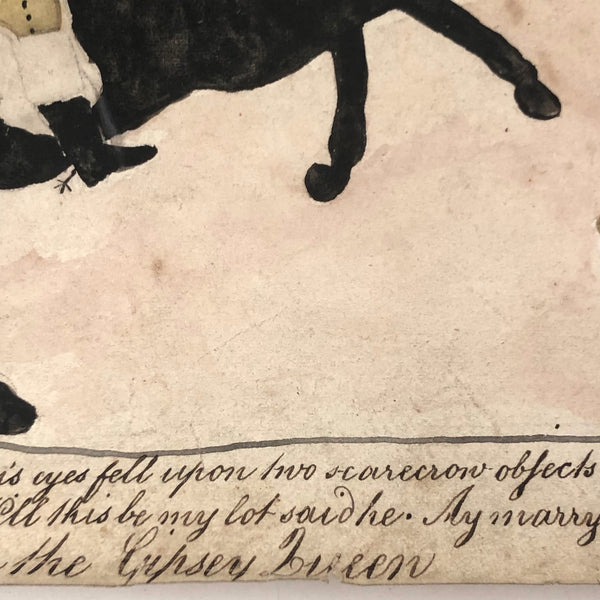 is eyes fell upon two scarecrow objects
ill this be my lot said he. Ay marry
the Gipsey Queen